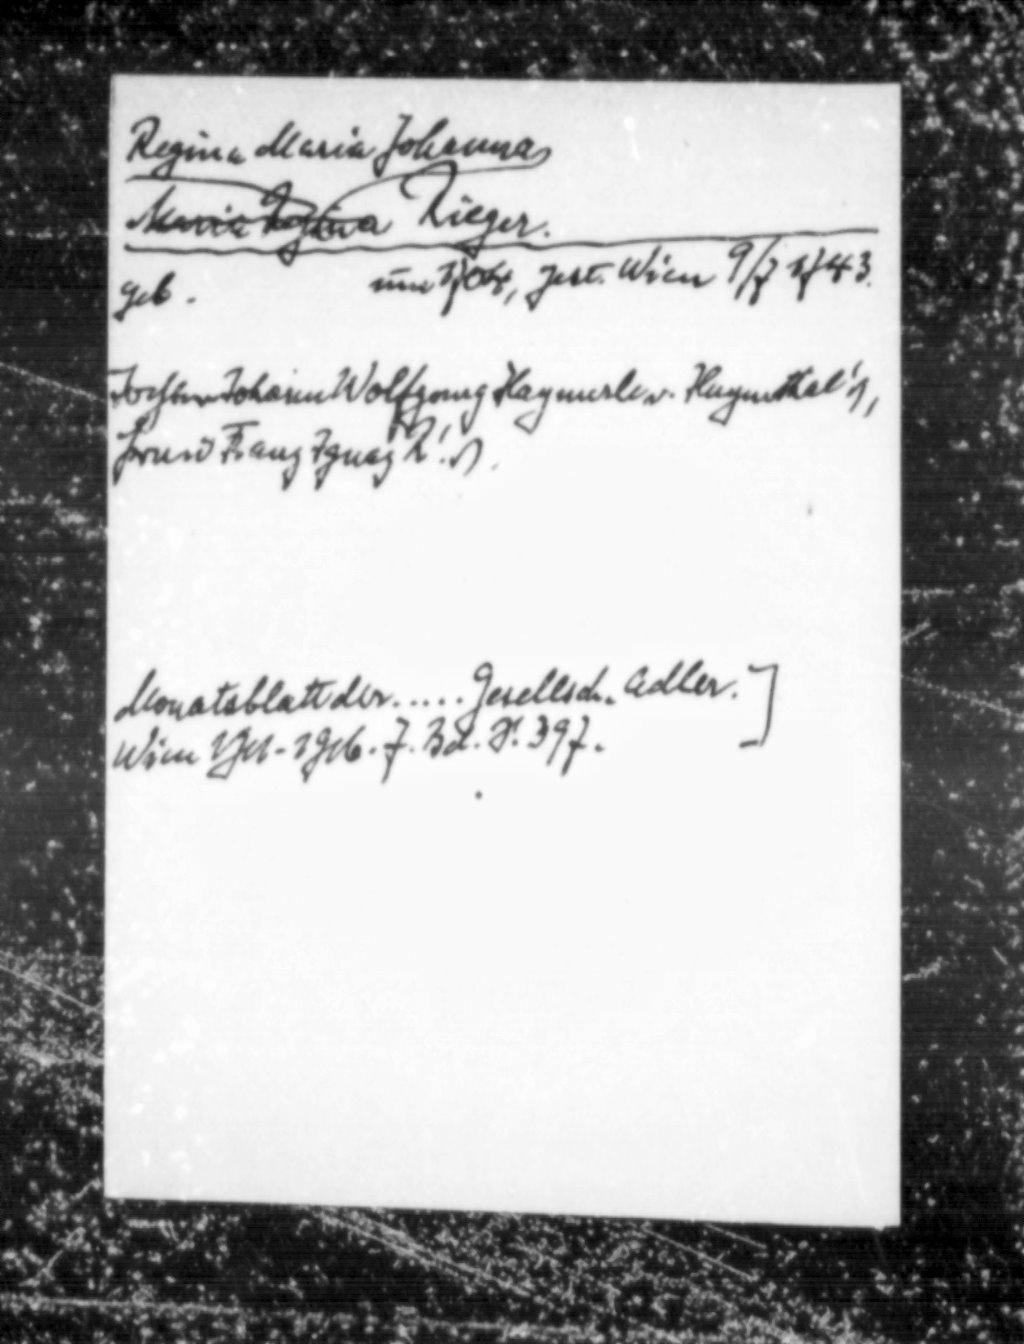 Regina Maria Johanna
Maria Regina Rieger.
geb. um gest. Wien 9/7 1743.
Tochter Johann Wolfgang Haymerle v. Haymthal's,
Frau d Franz Ignaz R.'s.
Monatsblatt der..... Gesellsch. Adler.]
Wien 7. Bd. S. 397.